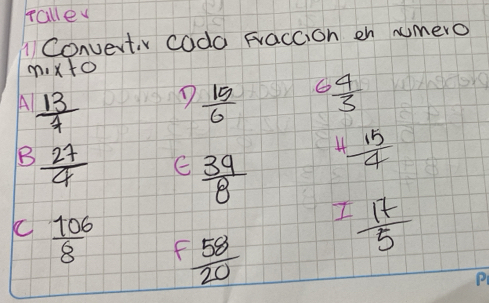 Taller
1) Convertir cada fracción en numero
mixto
A) 13/7
D) 15/6
G 4/3
B 27/4
E 39/8
H 15/4
C 106/8
F 58/20
I 17/5